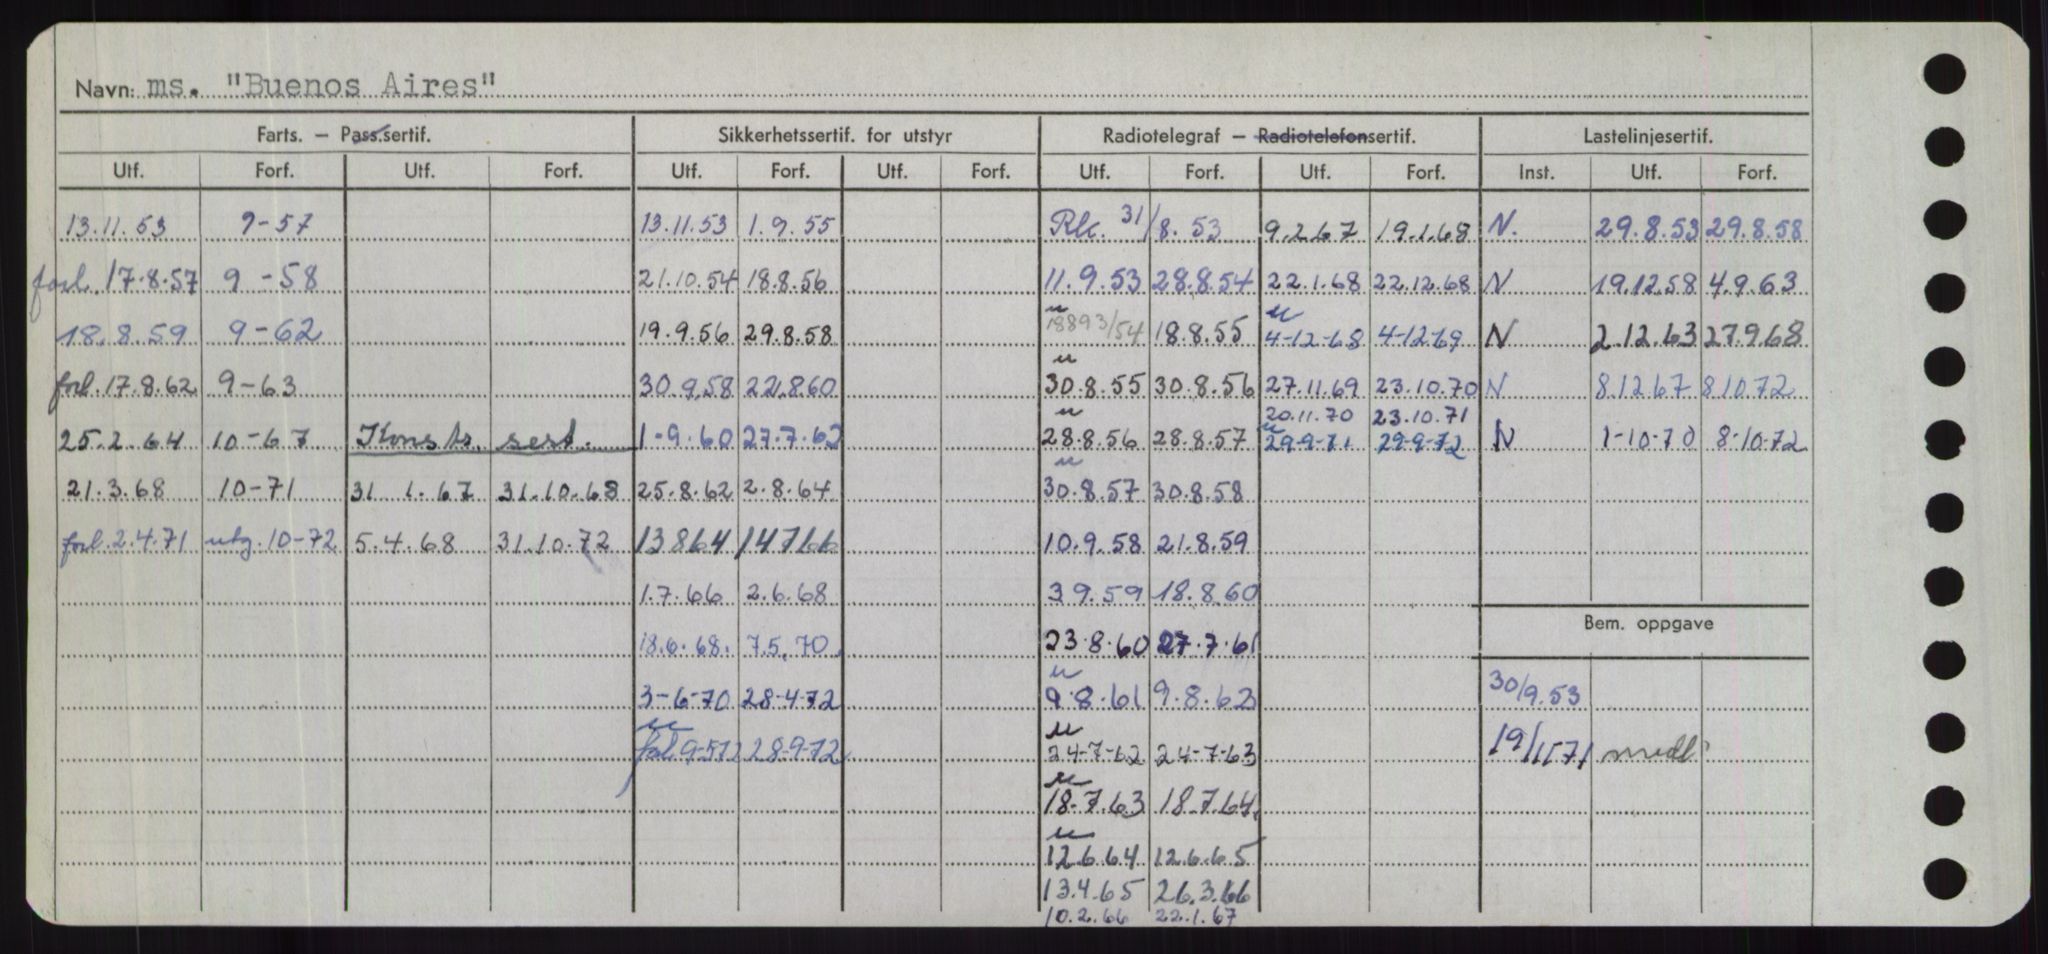 Navn: ms. "Buenos Aires"
Farts. — Pass.sertif. Sikkerhetssertif. for utstyr Radiotelegraf — Radiotelefonsertif. Lastelinjesertif.
Utf. Forf. Utf. Forf. Utf. Forf. Utf. Forf. Utf. Forf. Utf. Forf. Inst. Utf. Forf.
13.11.53 9-57 13.11.53 1.9.55 Rk. 31/8.53 9.2.67 19.1.68 N. 29.8.53 29.8.58
forl. 17.8.57 9-58 21.10.54 18.8.56 11.9.53 28.8.54 22.1.68 22.12.68 N 19.12.58 4.9.63
18.8.59 9-62 19.9.56 29.8.58 18893/54 18.8.55 4-12-68 4-12-69 N 2.12.63 27.9.68
forl. 17.8.62 9-63 30.9.58 22.8.60 30.8.55 30.8.56 27.11.69 23.10.70 N 8.12.67 8.10.72
20.11.70 23.10.71
25.2.64 10-67 Konstr. sert. 1-9.60 27.7.62 28.8.56 28.8.57 29-9-71 29-9-72 N 1-10-70 8-10-72
21.3.68 10-71 31.1.67 31.10.68 25.8.62 2.8.64 30.8.57 30.8.58
forl. 2.4.71 utg. 10-72 5.4.68 31.10.72 13864 14766 10.9.58 21.8.59
1.7.66 2.6.68 3.9.59 18.8.60
Bem. oppgave
18.6.68. 7.5.70. 23.8.60 27.7.61
3-6-70 28-4-72 9.8.61 9.8.62 30/9.53
forl. 9-572 28-9-72 24-7-62 24-7-63 19/11 71 medl.
18.7.63 18.7.64
12.6.64 12.6.65
13.4.65 26.3.66
10.2.66 22.1.67